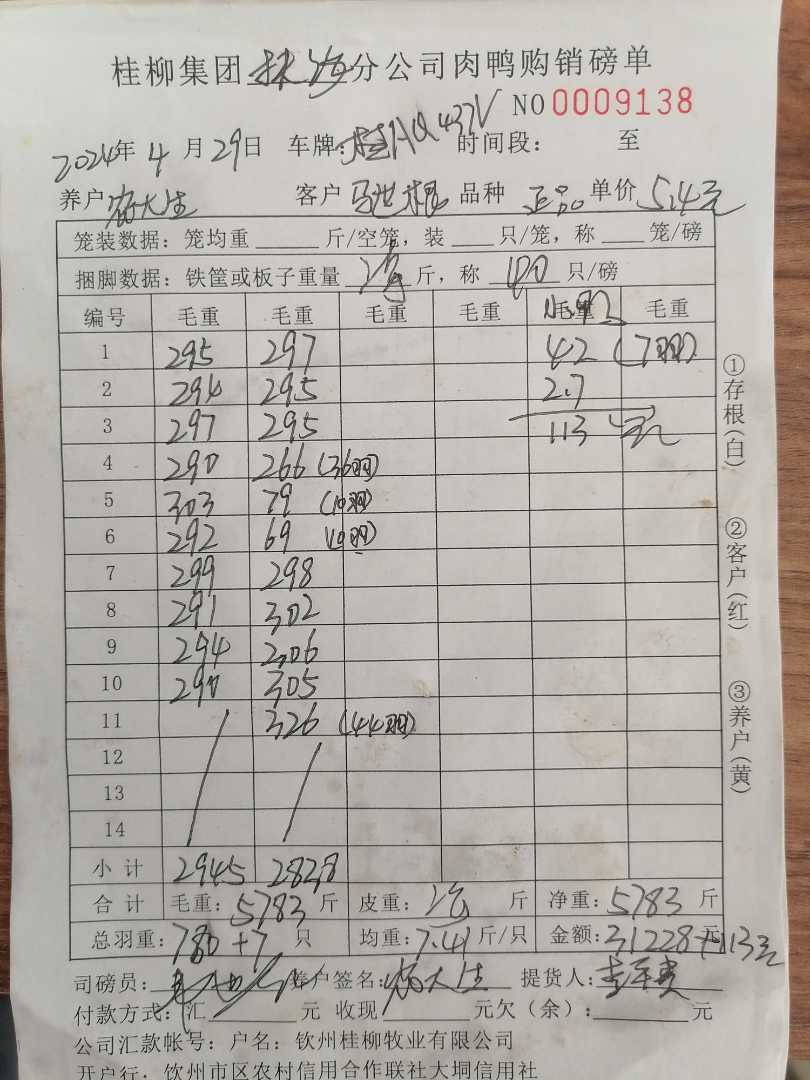 桂柳集团 分公司肉鸭购销磅单
NO 0009138
2024年 4 月 29日 车牌: 时间段: 至
养户 客户 品种 正品 单价 5.4元
笼装数据: 笼均重 斤/空笼, 装 只/笼, 称 笼/磅
捆脚数据: 铁筐或板子重量 斤, 称 40 只/磅
编号 毛重 毛重 毛重 毛重 毛重 毛重
1 295 297 42 (7羽)
2 294 295 2.7
3 297 295 113元
4 290 266 (36羽)
5 303 79 (10羽)
6 292 69 (10羽)
7 299 298
8 291 302
9 294 2.06
10 290 305
11 326 (44羽)
12
13
14
小计 2945 2828
合计 毛重: 5783 斤 皮重: 斤 净重: 5783 斤
总羽重: 780+7 只 均重: 7.41 斤/只 金额: 31228+113元
司磅员: 养户签名: 提货人:
付款方式: 汇 元 收现 元欠(余): 元
公司汇款帐号: 户名: 钦州桂柳牧业有限公司
开户行: 钦州市区农村信用合作联社大垌信用社
①存根(白)
②客户(红)
③养户(黄)